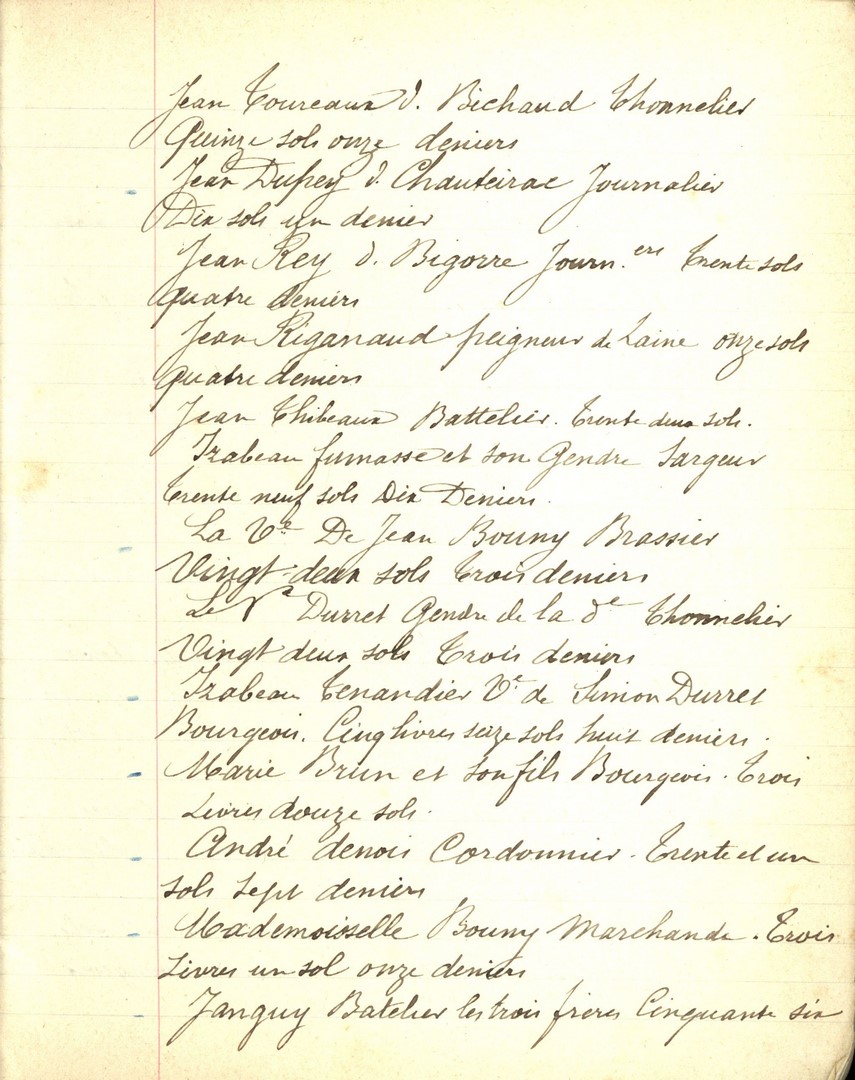 Jean Toureaux d. Bichaud Thonnelier
Quinze sols onze deniers
Jean Dupey d. Chauteirac Journalier
Dix sols un denier
Jean Rey d. Bigorre Journ.ers trente sols
quatre deniers
Jean Riganaud peigneur de Laine onze sols
quatre deniers
Jean Thibeaux Battelier. trente deux sols.
Izabeau fumasse et son Gendre Sargeur
trente neuf sols Dix Deniers.
La Ve De Jean Bouny Brassier
Vingt-deux sols trois deniers
Le Durret Gendre de la de Thonnelier
Vingt deux sols Trois deniers
Izabeau Tenandier Ve de Simon Durret
Bourgeois. Cinq livres seize sols huit deniers.
Marie Brun et son fils Bourgeois. Trois
Livres douze sols.
André denois Cordonnier. Trente et un
sols sept deniers
Mademoisselle Bouny Marchande. Trois
Livres un sol onze deniers
Janguy Batelier les trois frères Cinquante six